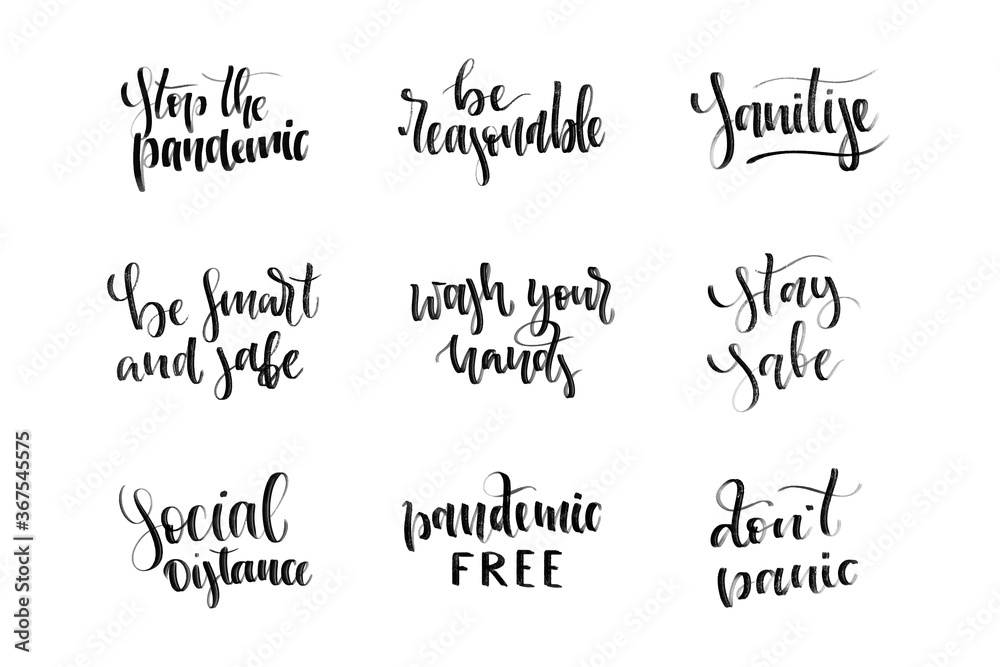 Stop the
pandemic
be
reasonable
Sanitise
Be smart
and safe
wash your
hands
Stay
safe
Social
Distance
pandemic
FREE
don't
panic
Adobe Stock | #367545575